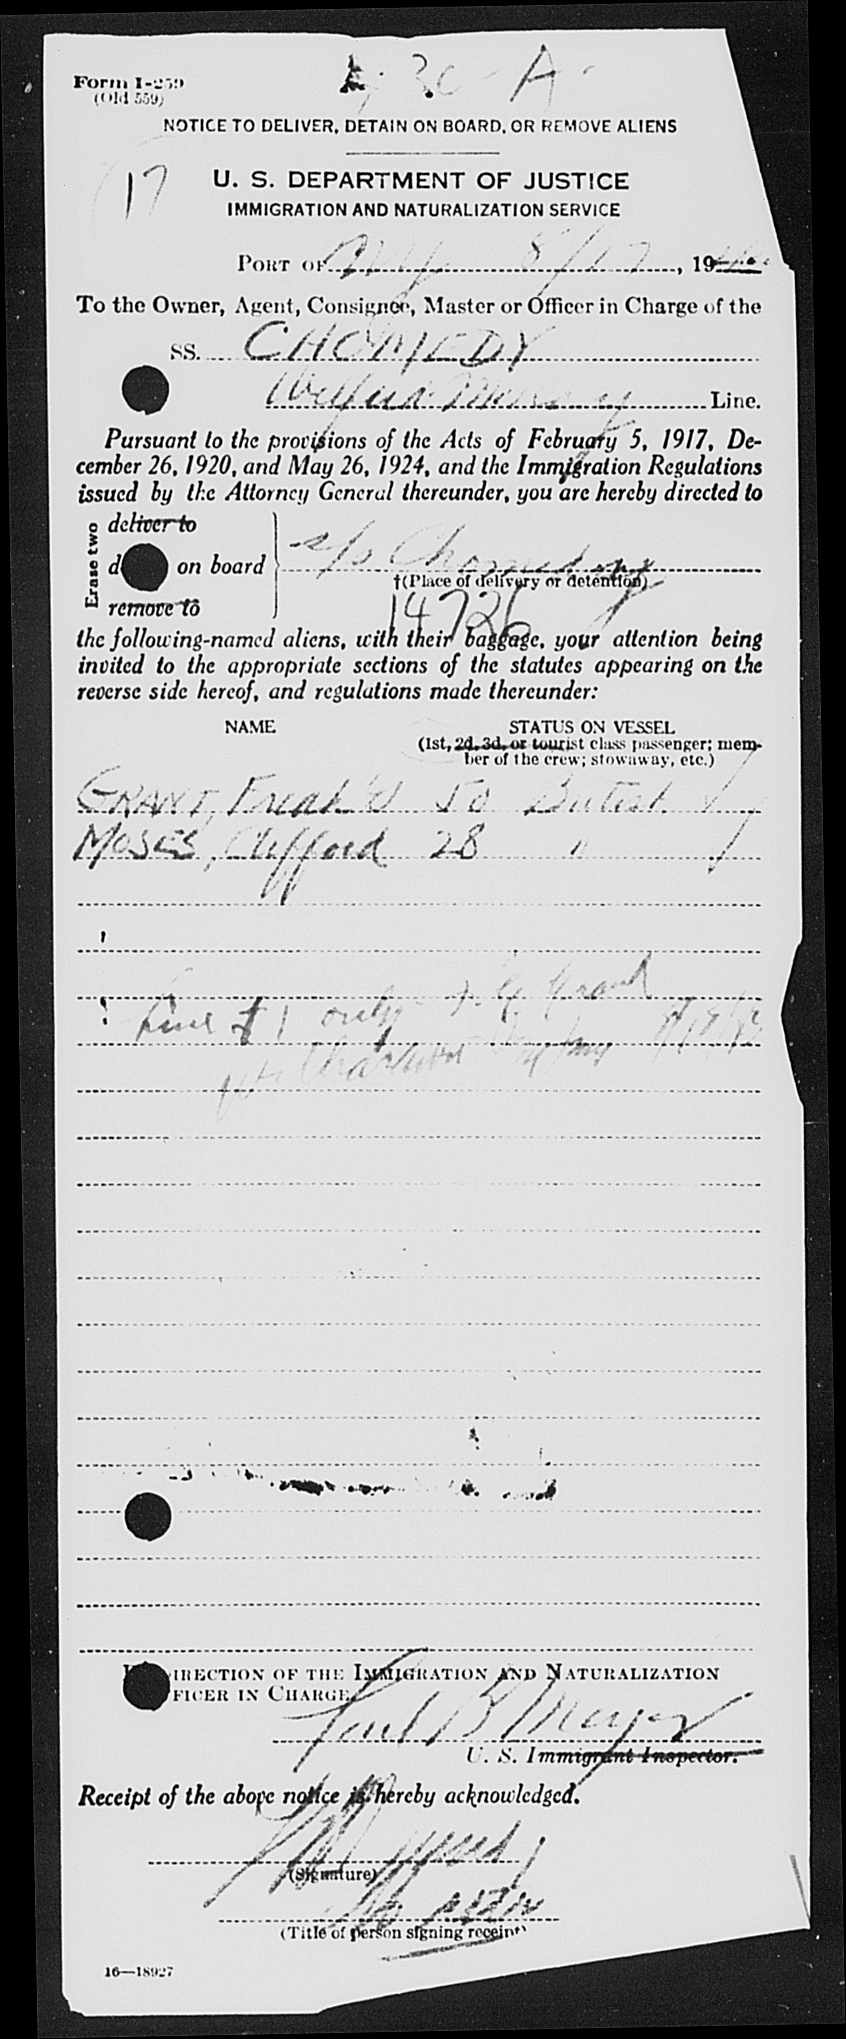 Form I-259
(Old 559)
NOTICE TO DELIVER, DETAIN ON BOARD, OR REMOVE ALIENS
17
U. S. DEPARTMENT OF JUSTICE
IMMIGRATION AND NATURALIZATION SERVICE
PORT OF 8/17, 19
To the Owner, Agent, Consignee, Master or Officer in Charge of the
SS. CHOMEDY
Line.
Pursuant to the provisions of the Acts of February 5, 1917, De-
cember 26, 1920, and May 26, 1924, and the Immigration Regulations
issued by the Attorney General thereunder, you are hereby directed to
Erase two
deliver to
on board s/s Chomedy
†(Place of delivery or detention)
remove to
14726
the following-named aliens, with their baggage, your attention being
invited to the appropriate sections of the statutes appearing on the
reverse side hereof, and regulations made thereunder:
NAME STATUS ON VESSEL
(1st, 2d, 3d, or tourist class passenger; mem-
ber of the crew; stowaway, etc.)
GRANT, Fredk 50 British ✓
MOSES, Clifford 28 " ✓
Line # 1 only
IRECTION OF THE IMMIGRATION AND NATURALIZATION
FICER IN CHARGE
Paul B Meyer
U. S. Immigrant Inspector.
Receipt of the above notice is hereby acknowledged.
(Signature)
(Title of person signing receipt)
16—18927